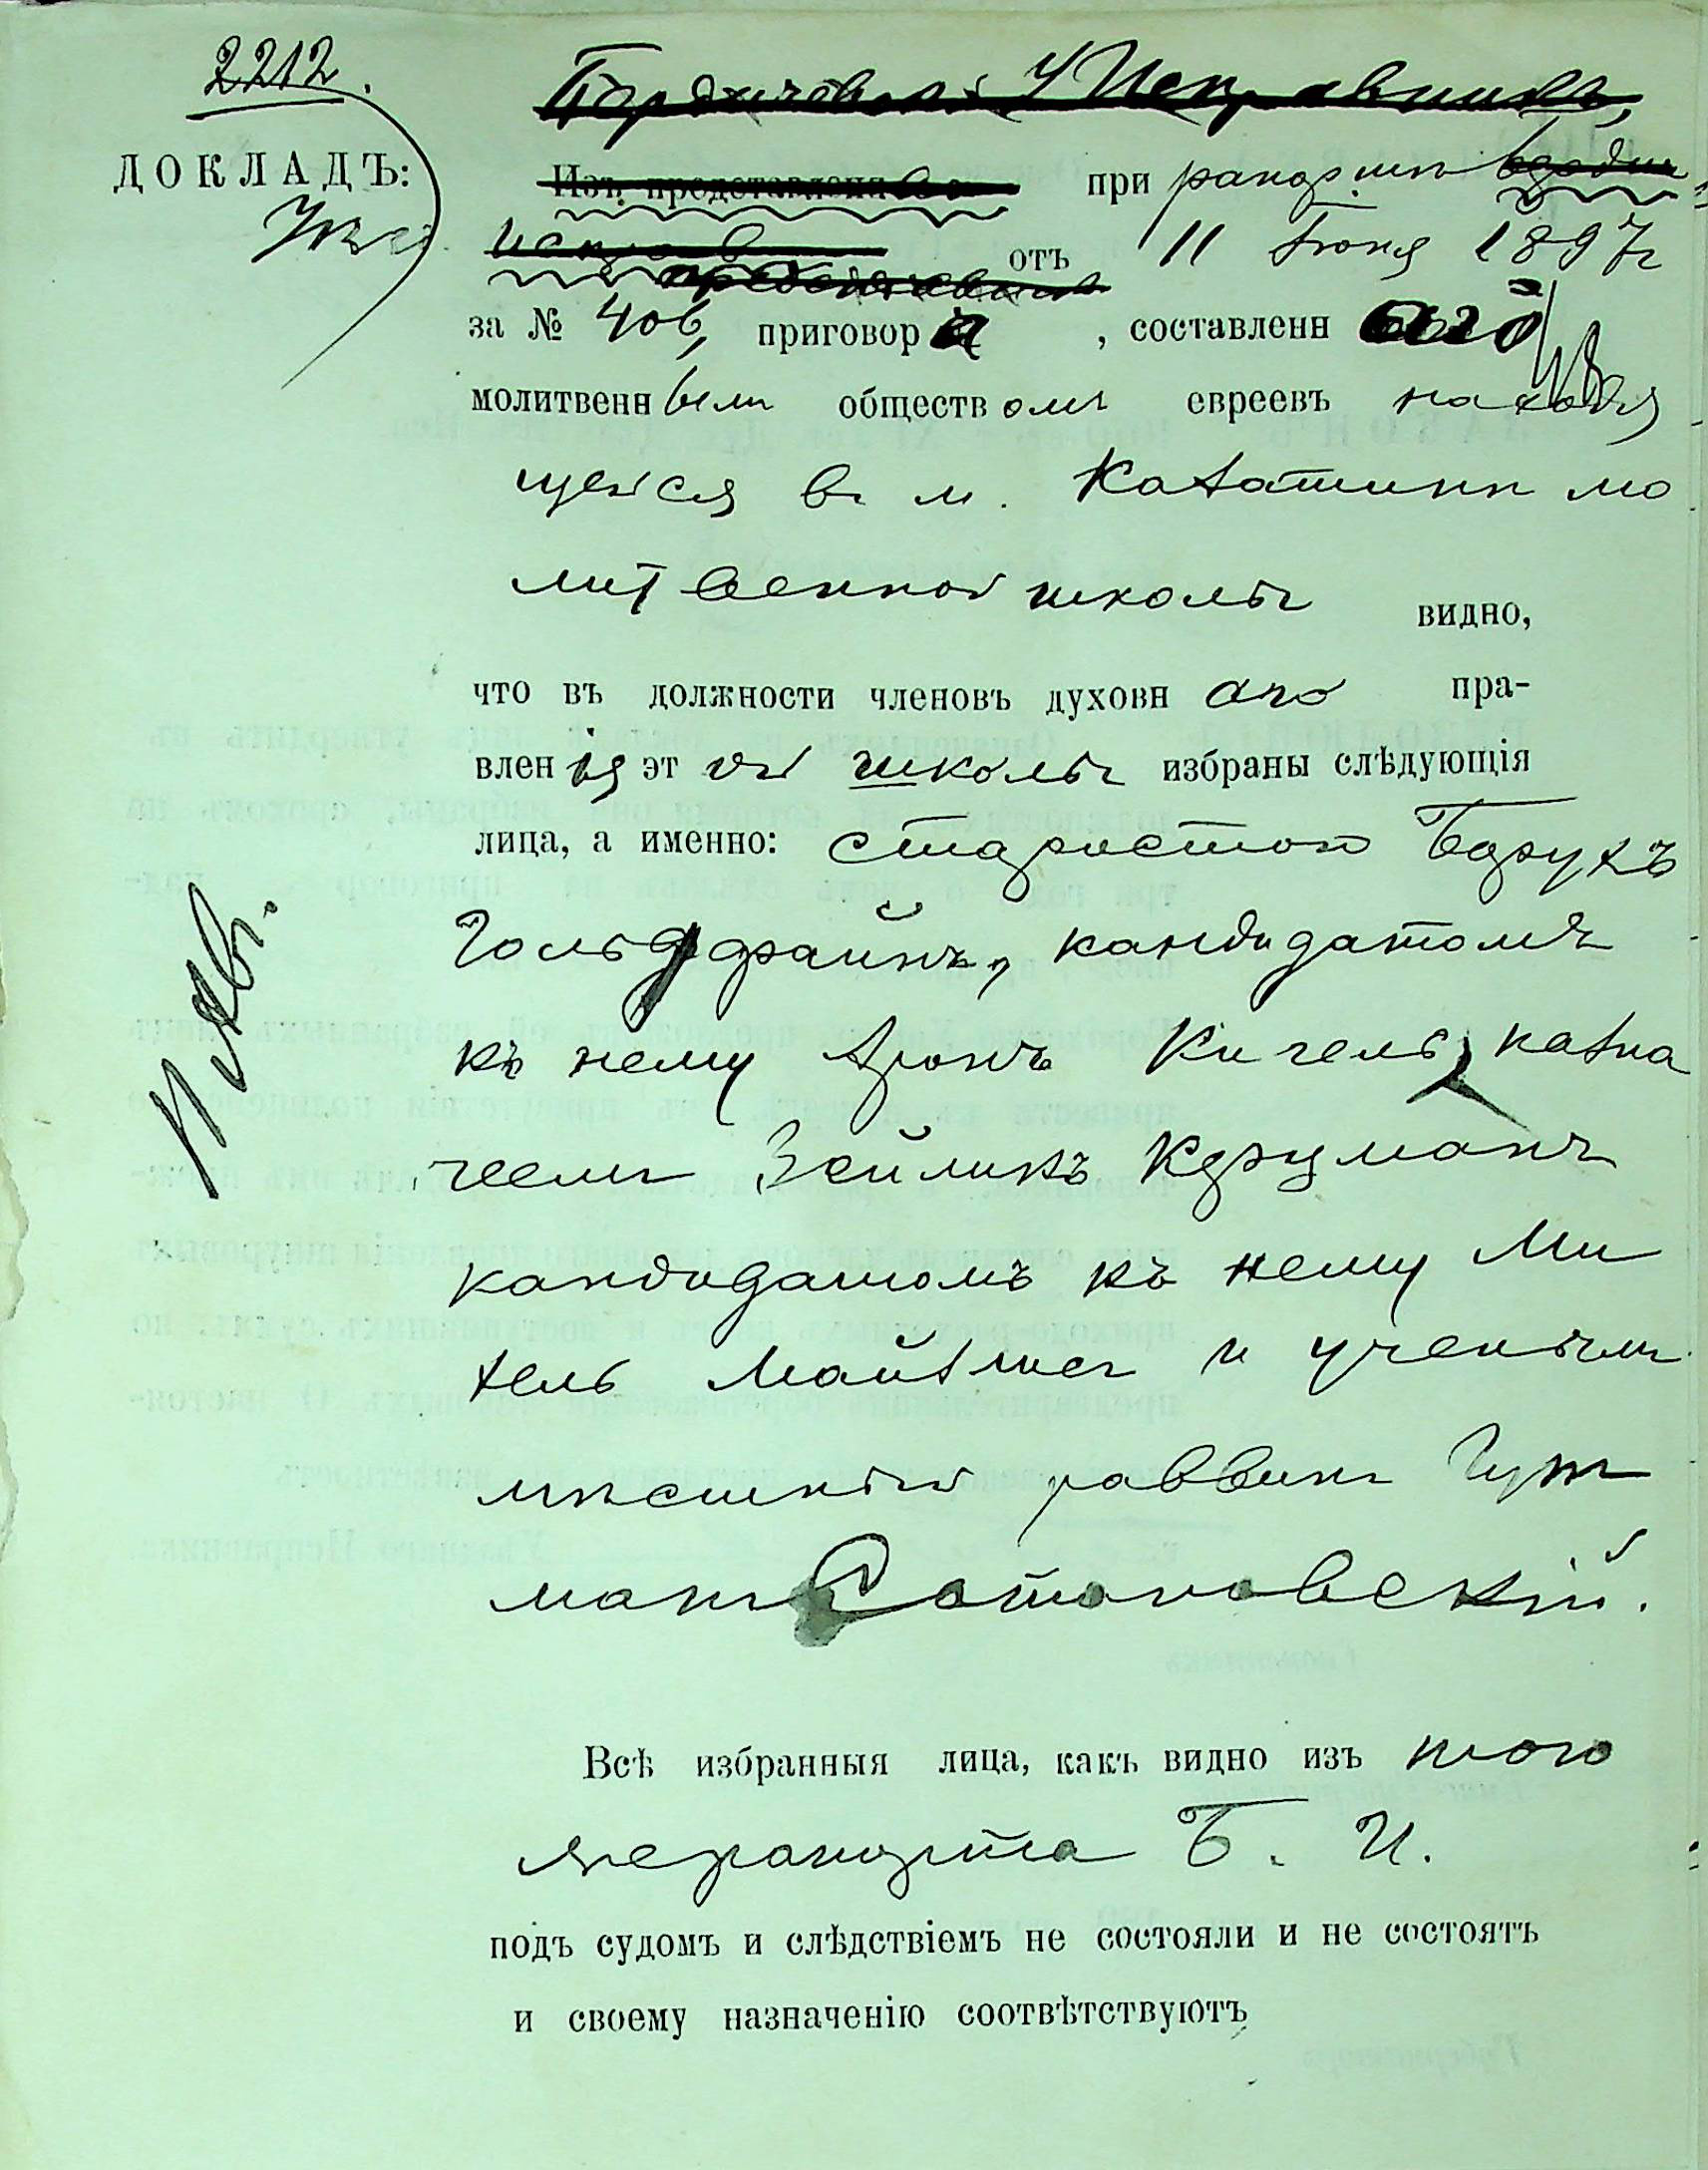 2212.
Бердичевскій У Исправникъ,
ДОКЛАДЪ:
Изъ представленн при рапортѣ
отъ 11 Іюня 1897 г
за № 406, приговора, составленнаго
молитвеннымъ обществомъ евреевъ находя
щейся въ м. Казатинѣ мо
литвенной школы видно,
что въ должности членовъ духовнаго пра-
вленія этой школы избраны слѣдующія
лица, а именно: старостою Борухъ
Гольдфайнъ, кандидатомъ
къ нему Аронъ Кигель, казна
чеемъ Зейликъ Керцманъ
кандидатомъ къ нему Ми
хель Майзлисъ и ученымъ
мѣстный раввинъ Гут
манъ Сатановскій.
Всѣ избранныя лица, какъ видно изъ того
же рапорта Б. И.
подъ судомъ и слѣдствіемъ не состояли и не состоятъ
и своему назначенію соотвѣтствуютъ